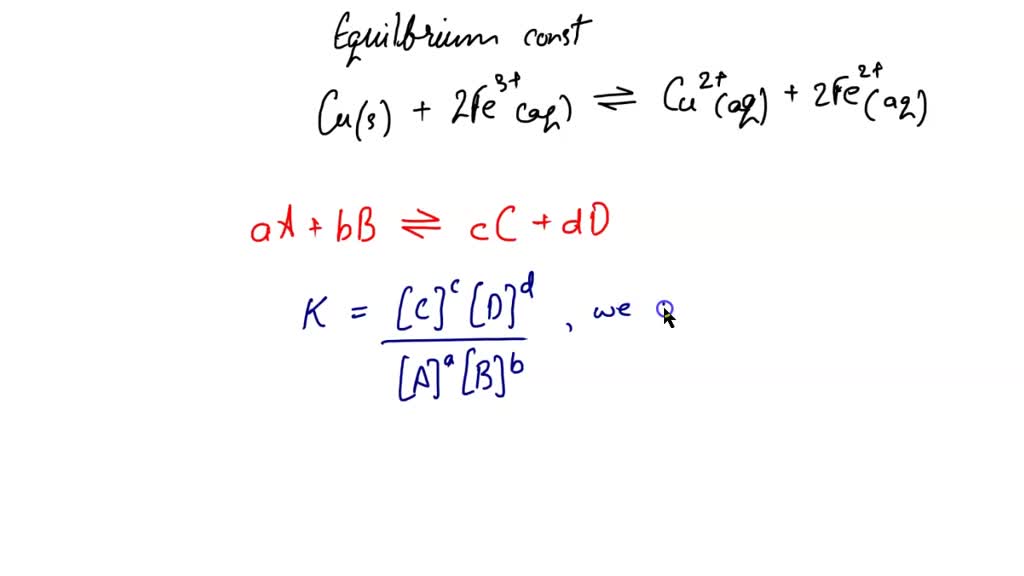 Equilbrium const
Cu(s) + 2Fe³⁺(aq) ⇌ Cu²⁺(aq) + 2Fe²⁺(aq)
aA + bB ⇌ cC + dD
K = [C]ᶜ [D]ᵈ / [A]ᵃ [B]ᵇ , we